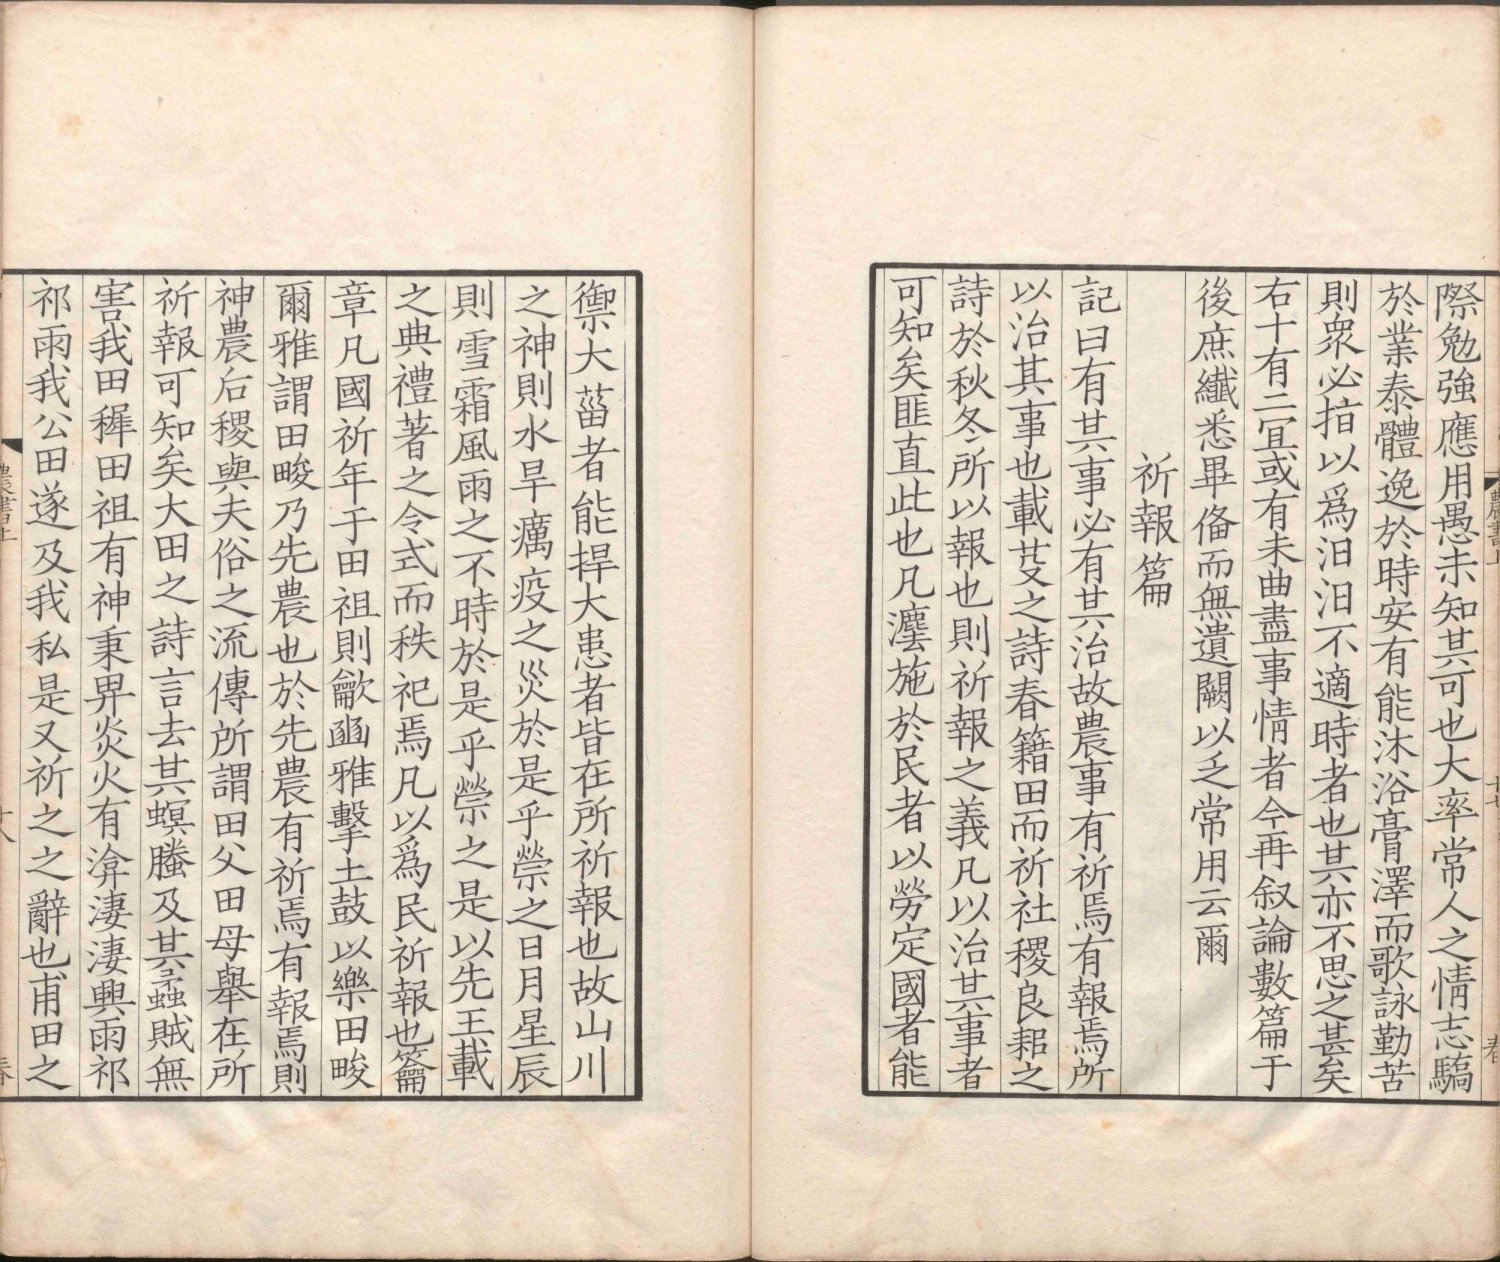 際勉強應用愚未知其可也大率常人之情志驕
於業泰體逸於時安有能沐浴膏澤而歌詠勤苦
則衆必指以爲汨汨不適時者也其亦不思之甚矣
右十有二冝或有未曲盡事情者今再叙論數篇于
後庶纖悉畢備而無遺闕以乏常用云爾
祈報篇
記曰有其事必有其治故農事有祈焉有報焉所
以治其事也載芟之詩春籍田而祈社稷良耜之
詩於秋冬所以報也則祈報之義凡以治其事者
可知矣匪直此也凡灋施於民者以勞定國者能
禦大菑者能捍大患者皆在所祈報也故山川
之神則水旱癘疫之災於是乎禜之日月星辰
則雪霜風雨之不時於是乎禜之是以先王載
之典禮著之令式而秩祀焉凡以爲民祈報也籥
章凡國祈年于田祖則龡豳雅擊土鼓以樂田畯
爾雅謂田畯乃先農也於先農有祈焉有報焉則
神農后稷與夫俗之流傳所謂田父田母舉在所
祈報可知矣大田之詩言去其螟螣及其蟊賊無
害我田穉田祖有神秉畀炎火有渰淒淒興雨祁
祁雨我公田遂及我私是又祈之之辭也甫田之
農書上
十七
春
農書上
十八
春